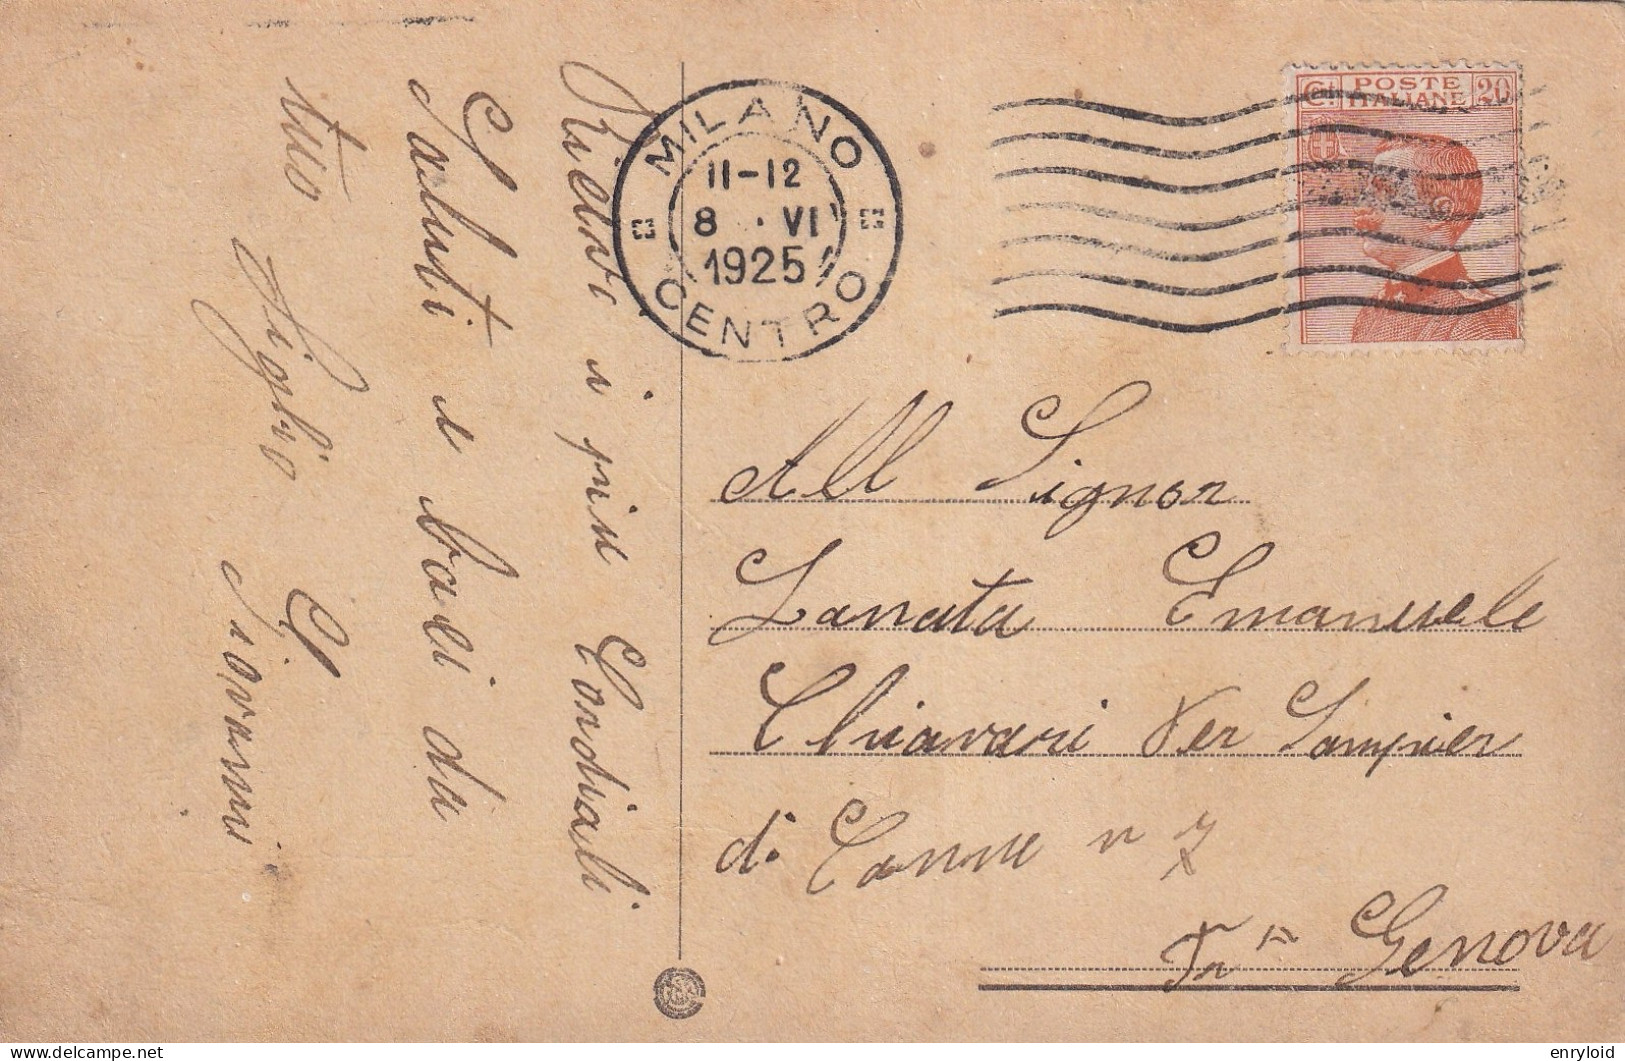 Ricevi i piu Cordiali
Saluti e baci da
tuo Figlio G.
Giovanni
MILANO
11-12
8 · VI
1925
CENTRO
C.i POSTE 20
ITALIANE
All Signor
Lanata Emanuele
Chiavari Per Sampier
di Canne n 7
Genova
enryloid
delcampe.net